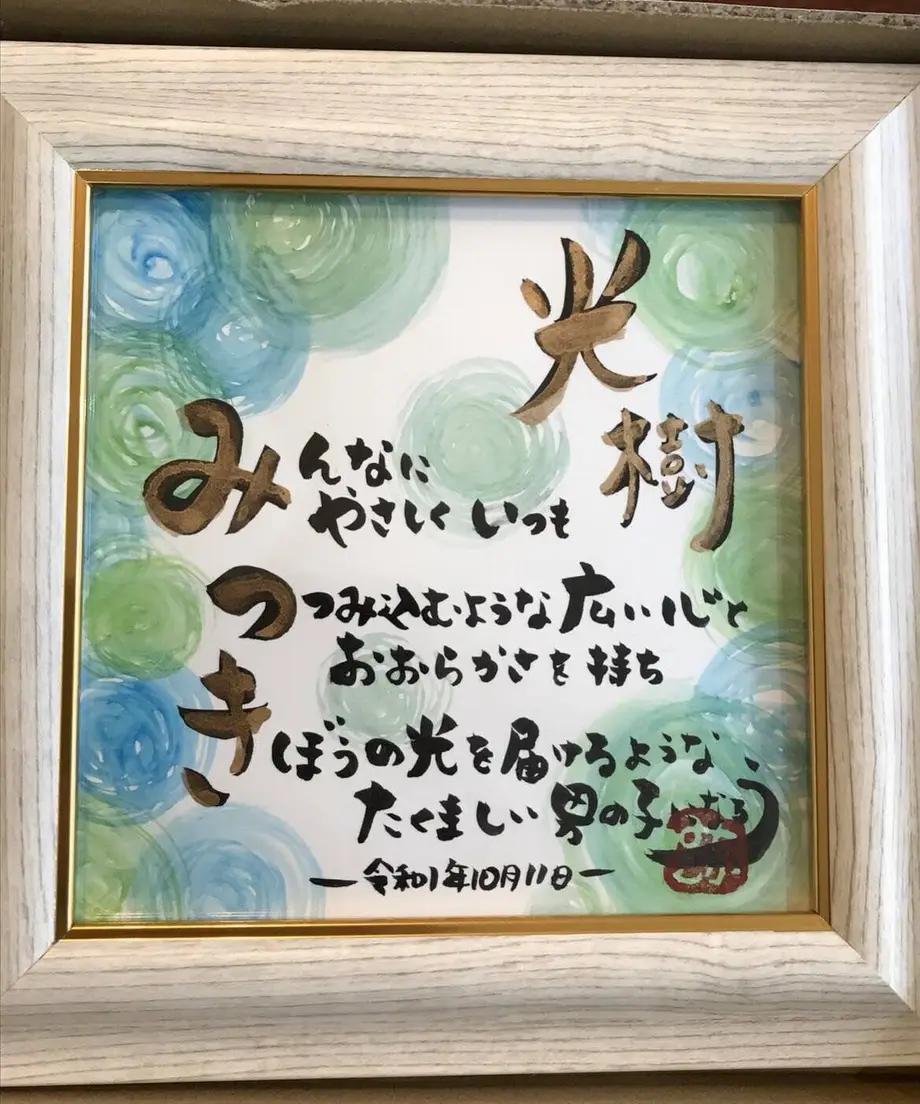 光樹
みんなに
やさしく いつも
つつみ込むような広い心と
おおらかさを持ち
きぼうの光を届けるような
たくましい男の子になろう
—令和1年10月11日—